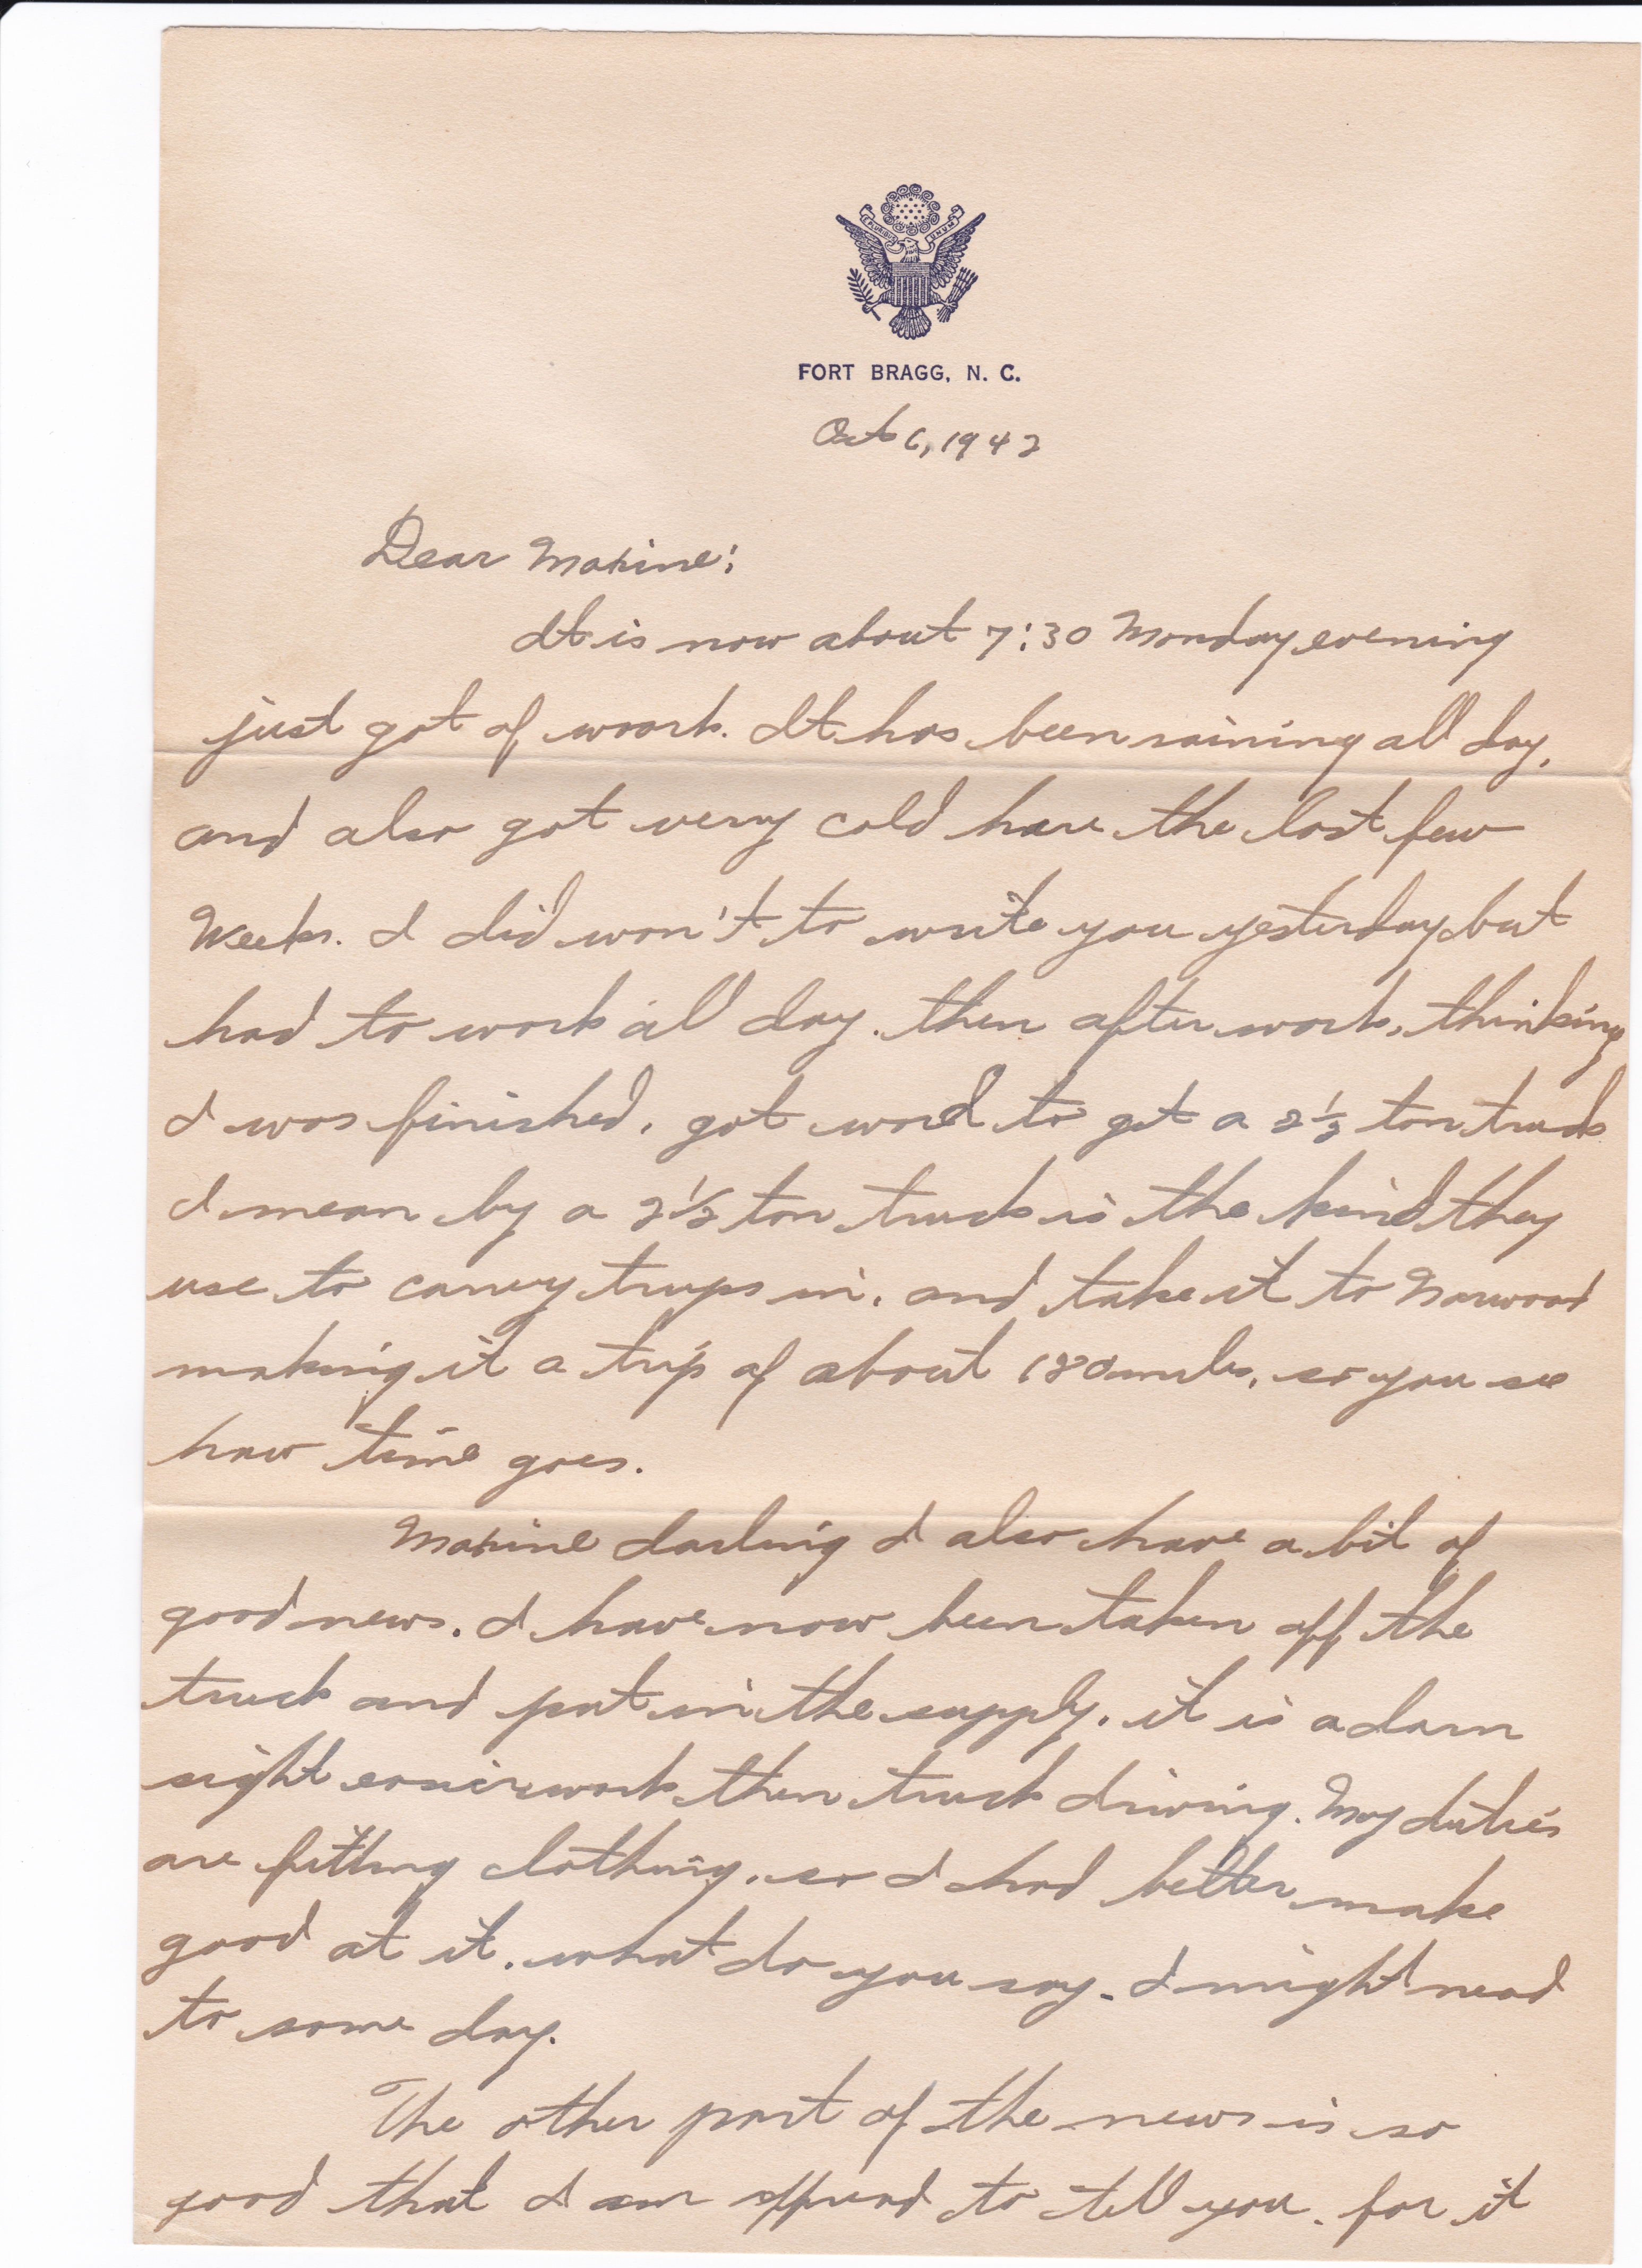 E PLURIBUS UNUM
FORT BRAGG, N. C.
Oct 6, 1942
Dear Maxine:
It is now about 7:30 Monday evening
just got of work. It has been raining all day,
and also got very cold here the last few
Weeks. I did won't to write you yesterday but
had to work all day. then after work, thinking
I was finished, got word to get a 2 1/2 ton truck
I mean by a 2 1/2 ton truck is the kind they
use to carry trups in, and take it to Norwood
making it a trip of about 180 miles, so you see
how time goes.
Maxine darling I also have a bit of
good news. I have now been taken off the
truck and put in the supply. it is a darn
sight easier work then truck driving. My duties
are fitting clothing, so I had better make
good at it. what do you say. I might need
to some day.
The other part of the news is so
good that I am affraid to tell you. for it